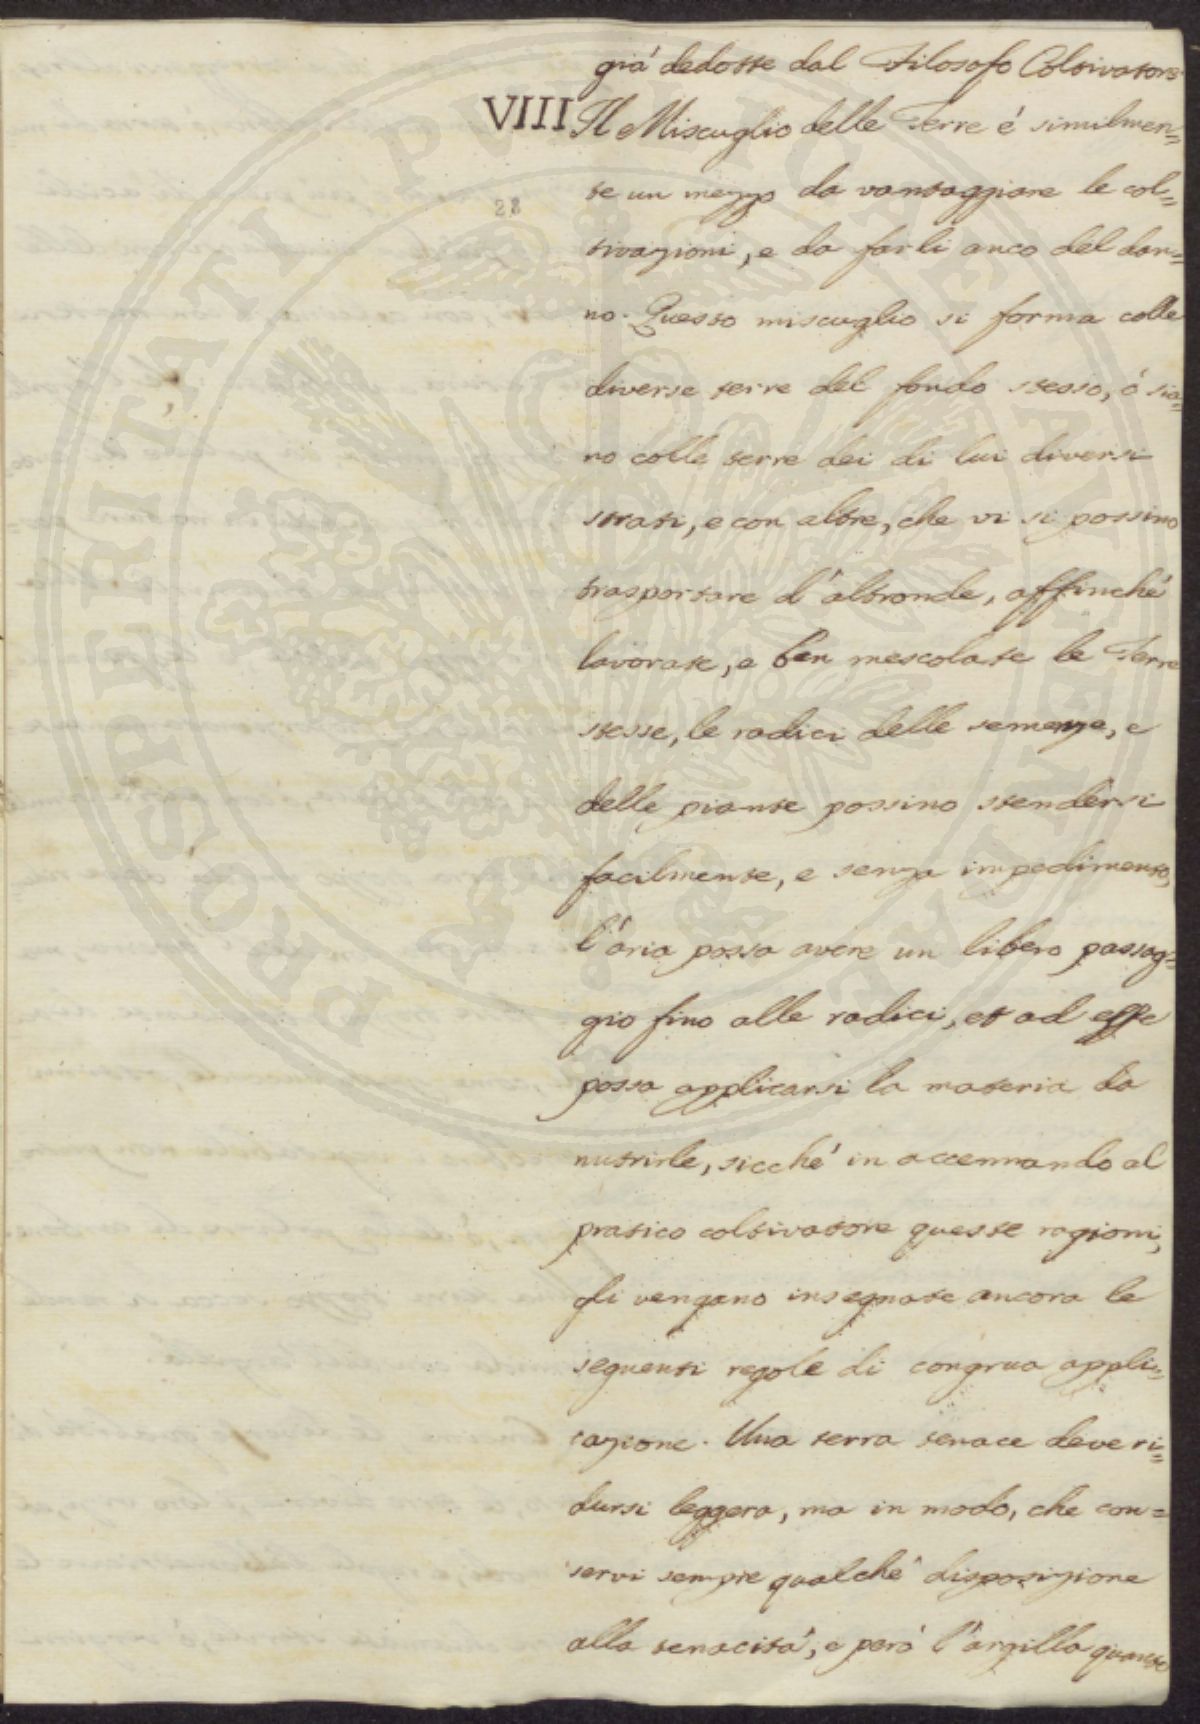 già dedotte dal Filosofo Coltivatore
VIII Il Miscuglio delle Terre é similmen=
te un mezzo da vantaggiare le col=
28
tivazioni, e da farli anco del dan=
no. Questo miscuglio si forma colle
diverse terre del fondo stesso, ó sia=
no colle terre dei di lui diversi
strati, e con altre, che vi si possino
trasportare d'altronde, affinché
lavorate, e ben mescolate le Terre
stesse, le radici delle semenze, e
delle piante possino stendersi
facilmente, e senza impedimento,
l'aria possa avere un libero passag=
gio fino alle radici, et ad esse
possa applicarsi la materia da
nutrirle, sicché in accennando al
pratico coltivatore queste ragioni,
gli vengano insegnate ancora le
seguenti regole di congrua appli=
cazione. Una terra tenace deve ri=
dursi leggera, ma in modo, che con=
servi sempre qualche disposizione
alla tenacitá, e peró l'argilla quanto
PROSPERITATI PUBLICAE AUGENDAE